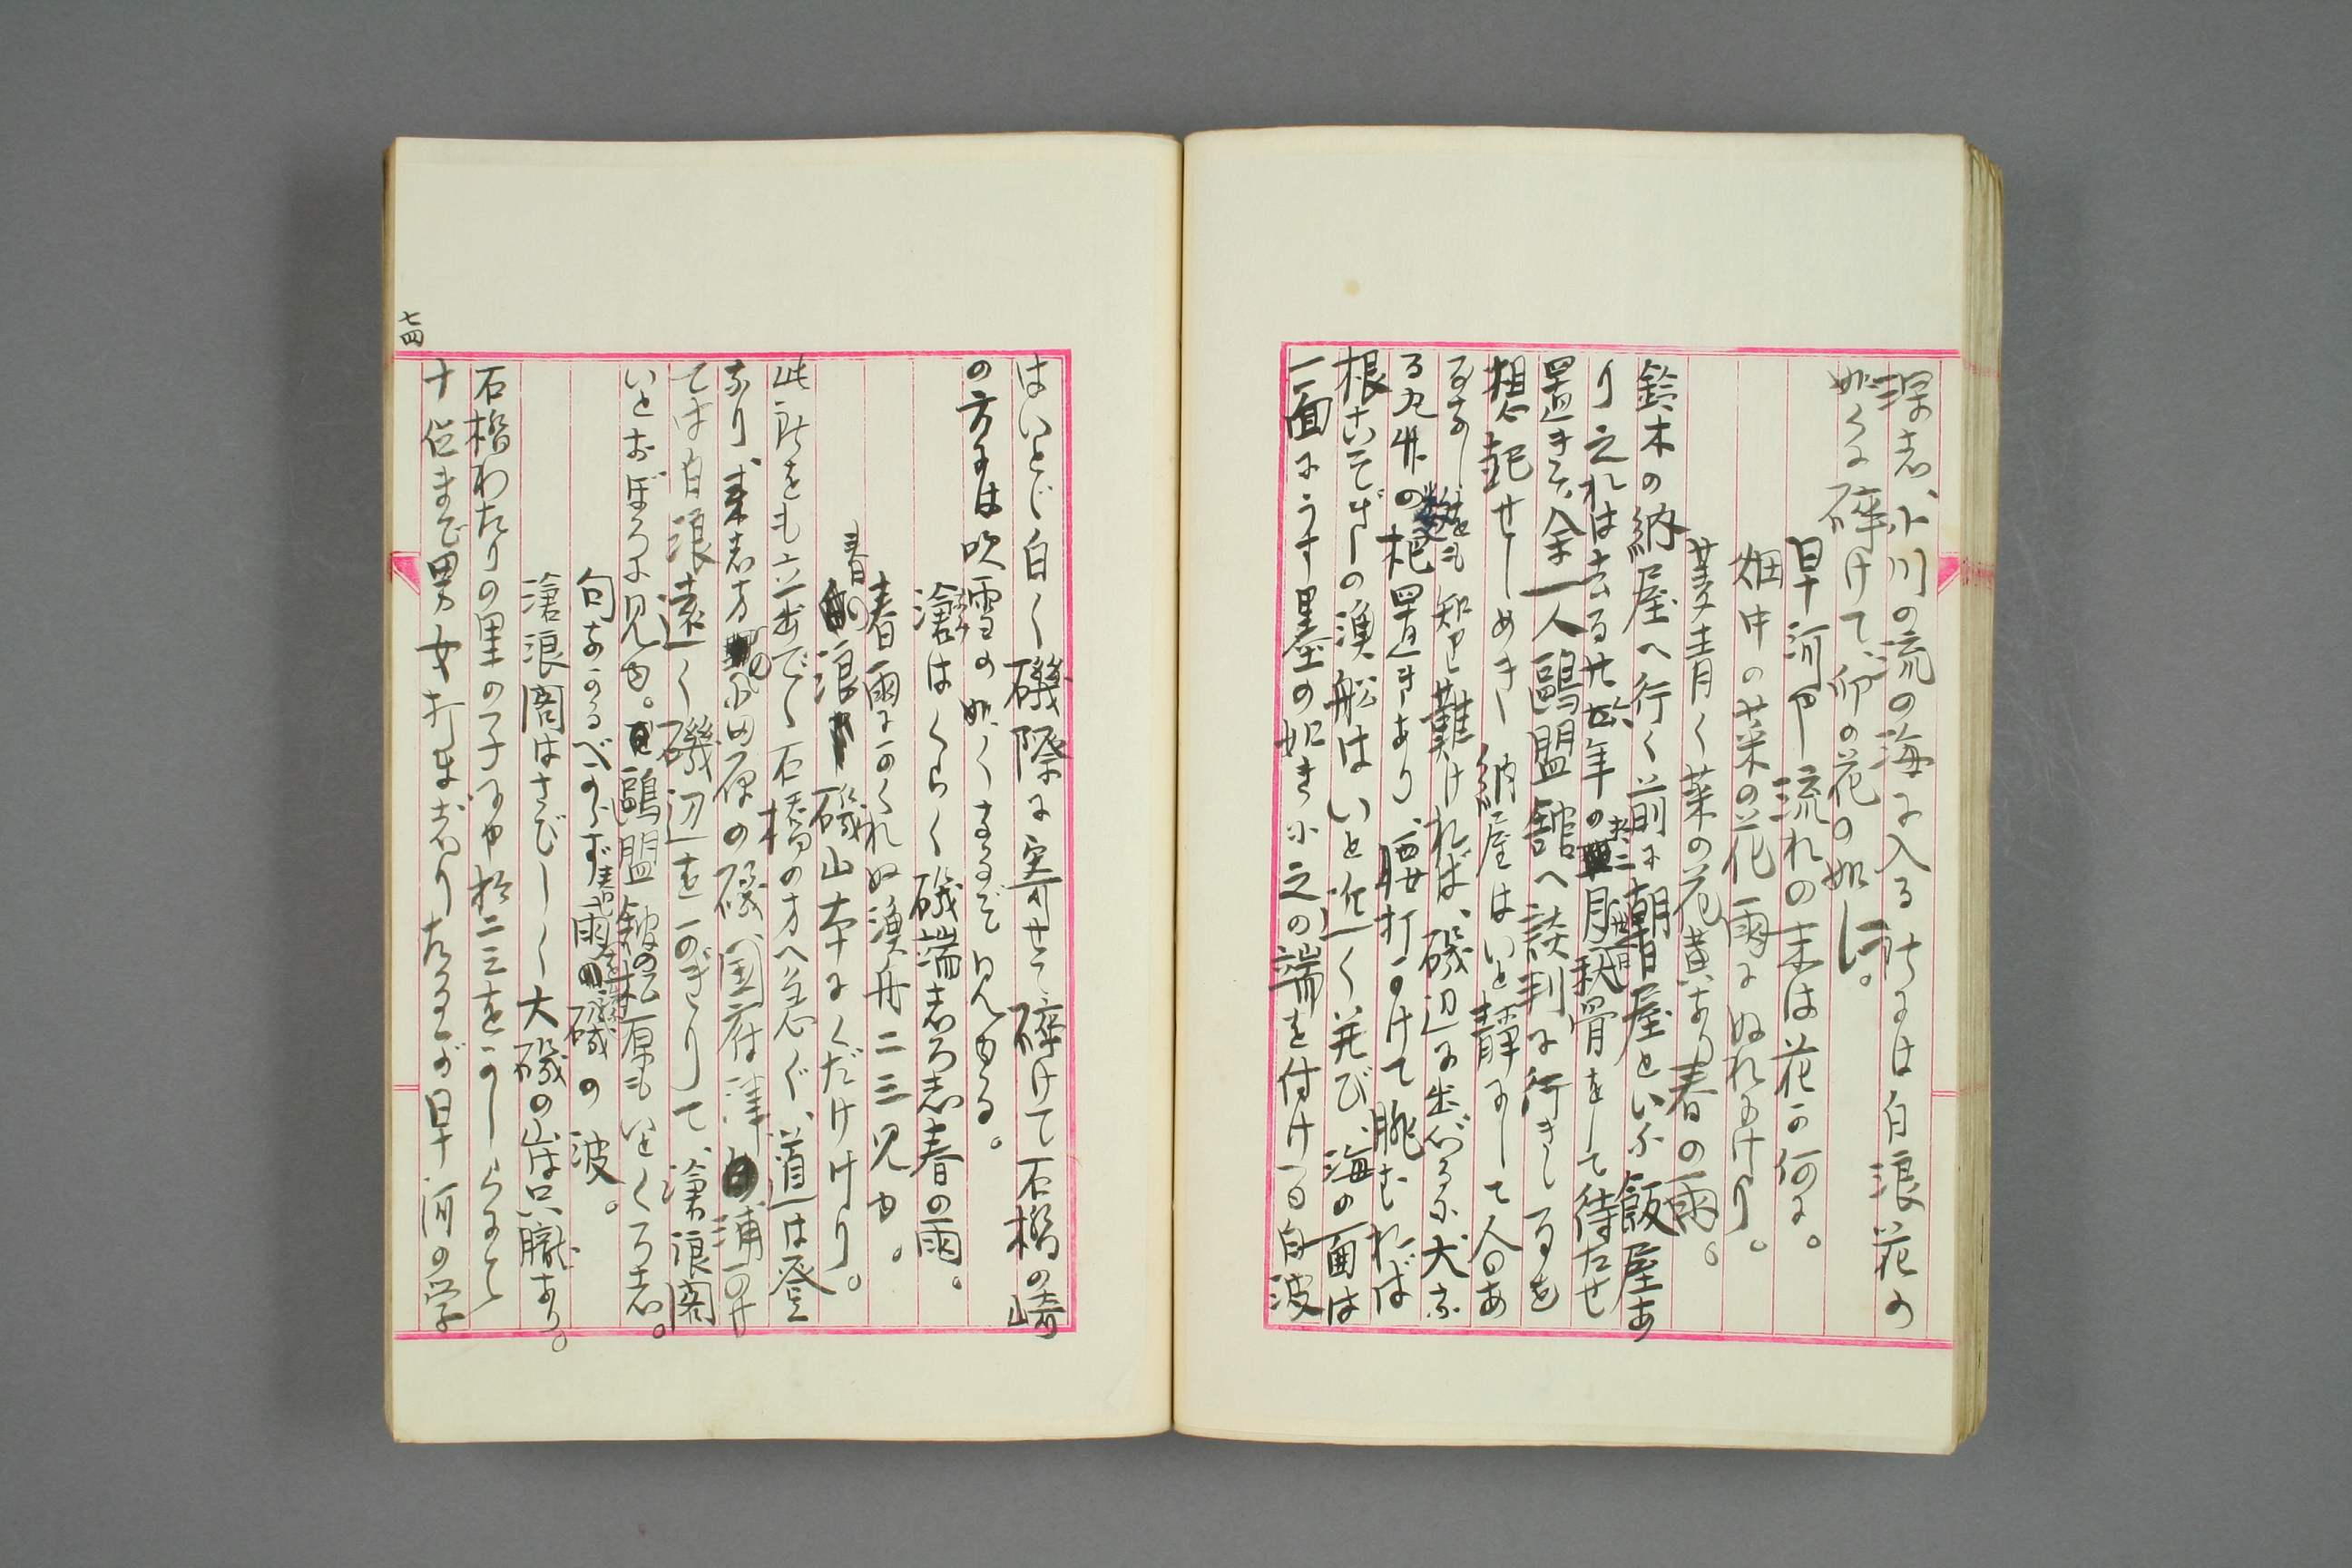 深志、小川の流の海に入る所には白浪花の
如くに砕けて、卯の花の如し。
早河や流れの末は花の何に。
畑中の菜の花雨にぬれにけり。
麦青く菜の花黄なり春の雨。
鈴木の納屋へ行く前に朝日屋といふ飯屋あ
り之れは去る廿年の月祝骨をして待たせ
置きて余一人鷗盟館へ談判に行きし事を
想起せしめき納屋はいと静にして人のあ
るなし知り難ければ、磯辺に出づるに大な
る丸井の杷置きあり、腰打かけて眺むれば
根こいそざしの漁船はいと近く並び、海の面は
一面にうす墨の如き之の端を付ける白波
はいとど白く磯際に寄せて砕けて石橋の崎
の方には吹雪の如くまるで見ゆる。
滄はくらく磯端志ろ志春の雨。
春雨にかくれぬ漁舟二三見ゆ。
春の浪磯山本にくだけけり。
此所をも立出でゝ石橋の方へ急ぐ、道は登
なり、来志方の小田原の磯、国府津の浦かけ
ては白浪遠く磯辺をかぎりて、滄浪閣
いとおぼろに見ゆ。鷗盟館の松原もいとくろ志。
句なかるべからず春雨の磯の波。
滄浪閣はさびしく大磯の山は只朧なり。
石橋わたりの里の子にや拾二三をかしらにて
十位まで男女打まぢりたるが早河の学
七四